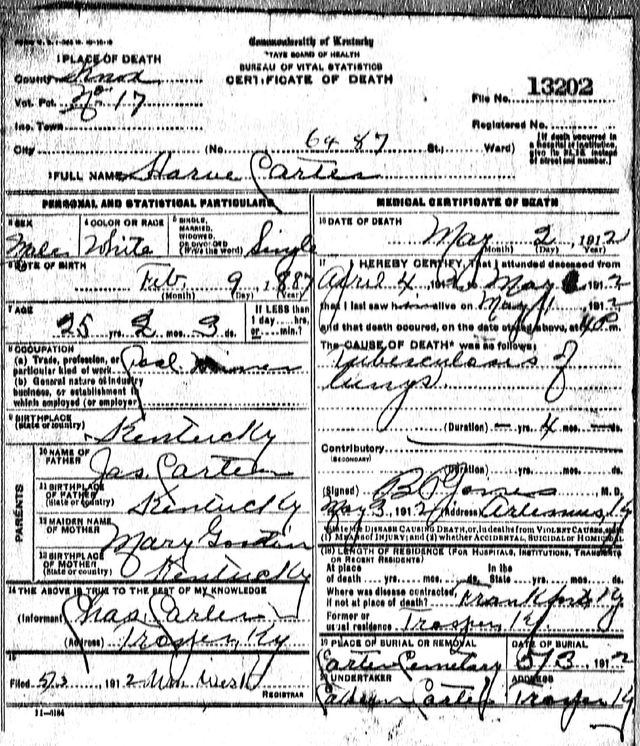 Commonwealth of Kentucky
STATE BOARD OF HEALTH
BUREAU OF VITAL STATISTICS
CERTIFICATE OF DEATH
1 PLACE OF DEATH
County Knox
Vot. Pct. No 17
Inc. Town
City
(No. 6487 St.; Ward)
File No. 13202
Registered No.
[If death occurred in a hospital or institution, give its NAME instead of street and number.]
2 FULL NAME Harve Carter
PERSONAL AND STATISTICAL PARTICULARS
3 SEX
Male
4 COLOR OR RACE
White
5 SINGLE, MARRIED, WIDOWED, OR DIVORCED (Write the word)
Single
6 DATE OF BIRTH
Feb 9, 1887
(Month) (Day) (Year)
7 AGE
25 yrs. 2 mos. 3 ds.
If LESS than 1 day.... hrs. or.... min.?
8 OCCUPATION
(a) Trade, profession, or particular kind of work Coal Miner
(b) General nature of industry business, or establishment in which employed (or employer)
9 BIRTHPLACE
(State or country) Kentucky
PARENTS
10 NAME OF FATHER Jas. Carter
11 BIRTHPLACE OF FATHER (State or country) Kentucky
12 MAIDEN NAME OF MOTHER Mary Gordon
13 BIRTHPLACE OF MOTHER (State or country) Kentucky
14 THE ABOVE IS TRUE TO THE BEST OF MY KNOWLEDGE
(Informant) Chas. Carter
(Address) Trosper, Ky
15
Filed 5/3, 1912 Wm West
REGISTRAR
11-6184
MEDICAL CERTIFICATE OF DEATH
16 DATE OF DEATH
May 2, 1912
(Month) (Day) (Year)
17 I HEREBY CERTIFY, That I attended deceased from
April 4 1912 to May 1912
that I last saw him alive on May 1 1912
and that death occured, on the date stated above, at P.m.
The CAUSE OF DEATH* was as follows:
Tuberculosis of
Lungs
(Duration) — yrs. 4 mos. — ds.
Contributory
(SECONDARY)
(Duration) yrs. mos. ds.
(Signed) B. P. Jones M.D.
May 3, 1912 (Address) Artemus, Ky
*State the DISEASE CAUSING DEATH, or, in deaths from VIOLENT CAUSES, state (1) MEANS OF INJURY; and (2) whether ACCIDENTAL, SUICIDAL or HOMICIDAL
(18) LENGTH OF RESIDENCE (FOR HOSPITALS, INSTITUTIONS, TRANSIENTS OR RECENT RESIDENTS)
At place of death yrs. mos. ds. In the State yrs. mos. ds.
Where was disease contracted, if not at place of death? Frankfort, Ky.
Former or usual residence Trosper, Ky.
19 PLACE OF BURIAL OR REMOVAL
Carter Cemetary
DATE OF BURIAL
5/3, 1912
20 UNDERTAKER
Carter
ADDRESS
Trosper Ky